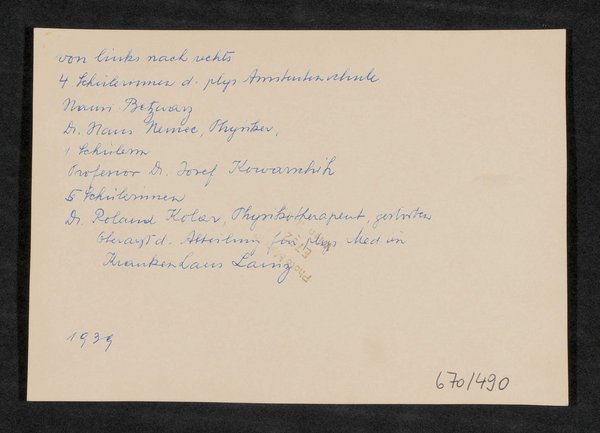 von links nach rechts
4 Schülerinnen d. phys Assistentenschule
Nanni Betzwarz
Dr. Hans Nemec, Physiker,
1 Schülerin
Professor Dr. Josef Kowarschik
5 Schülerinnen
Dr. Roland Kolar, Physikotherapeut, gestorben
Oberarzt d. Abteilung für phys Med im
Krankenhaus Lainz
1939
670/490